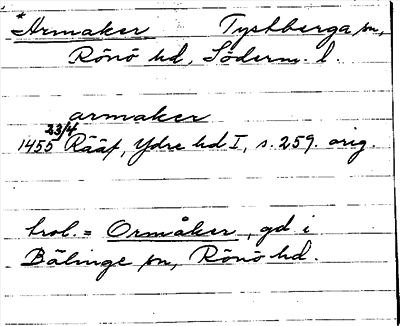 *Armaker Tystberga sn,
Rönö hd, Söderm. l.
armaker
23/4
1455 Rääf, Ydre hd I, s. 259. orig.
trol. = Ormåker, gd i
Bälinge sn, Rönö hd.